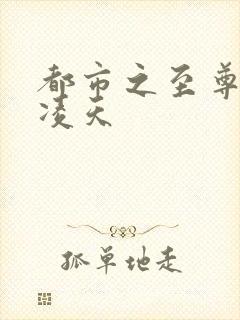 都市之至尊
凌天
孤单地走